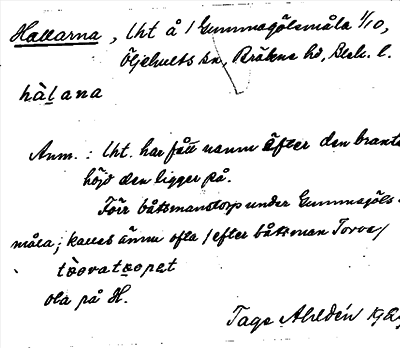 Hallarna, lht å 1 Gummagölsmåla 1/10,
Öljehults sn, Bräkne hd, Blek. l.
hàlana
Anm.: lht. har fått namn efter den branta
höjd den ligger på.
Förr båtsmanstorp under Gummagöls-
måla; kallas ännu ofta /efter båtsman Torva/
tòorvatorpet
ola på H.
Tage Ahldén